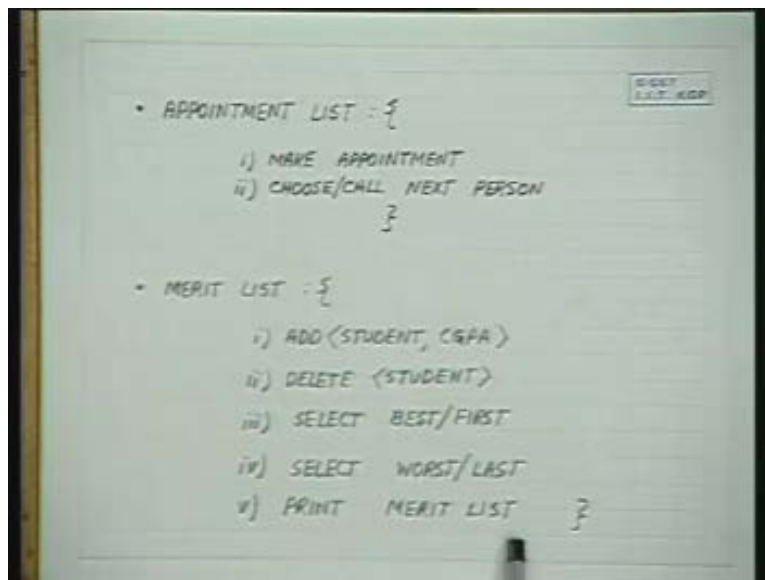 • APPOINTMENT LIST : {
i) MAKE APPOINTMENT
ii) CHOOSE/CALL NEXT PERSON
}
• MERIT LIST : {
i) ADD <STUDENT, CGPA>
ii) DELETE <STUDENT>
iii) SELECT BEST/FIRST
iv) SELECT WORST/LAST
v) PRINT MERIT LIST }
I.I.T. KGP